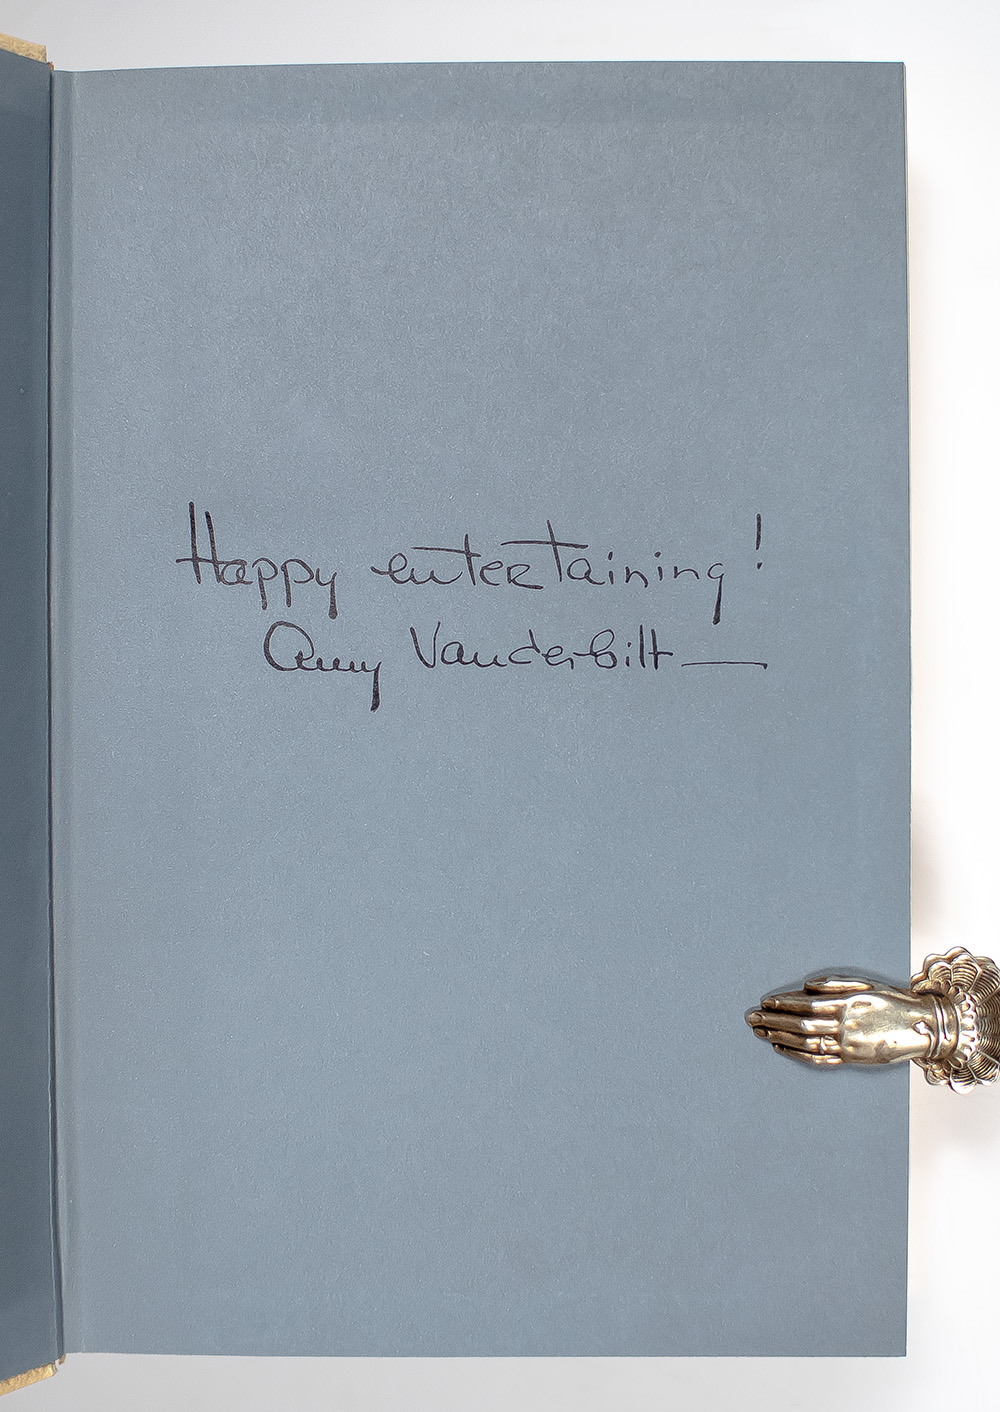 Happy entertaining!
Amy Vanderbilt —